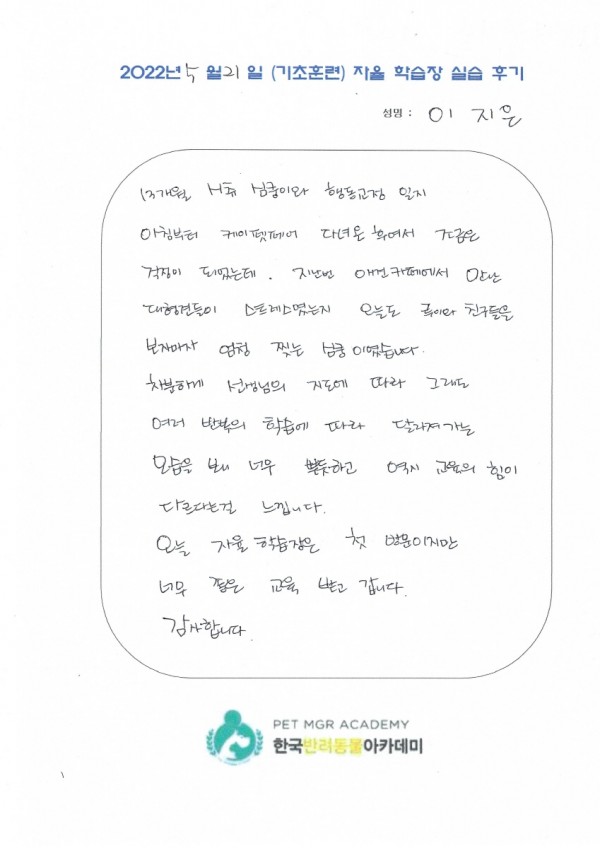 2022년 5 월 21 일 (기초훈련) 자율 학습장 실습 후기
성명 : 이 지은
13개월 심쿵이와 행동교정 일지
아침부터 케이펫페어 다녀온 후여서 조금은
걱정이 되었는데. 지난번 애견카페에서 만난
대형견들이 스트레스였는지 오늘도 친구들을
보자마자 엄청 찢는 심쿵이였습니다.
차분하게 선생님의 지도에 따라 그래도
여러 반복의 학습에 따라 달라져가는
모습을 보니 너무 뿌듯하고 역시 교육의 힘이
다르다는걸 느낍니다.
오늘 자율학습장은 첫 방문이지만
너무 좋은 교육 받고 갑니다.
감사합니다.
PET MGR ACADEMY
한국반려동물아카데미